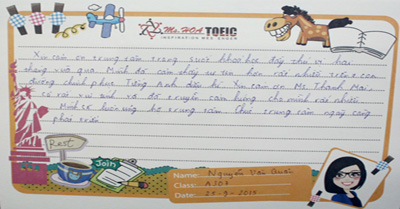 Ms. HOA TOEIC
INSPIRATION WAS SHOWN
Xin cảm ơn trung tâm trong suốt khoá học đầy thú vị hai
tháng vừa qua. Mình đã cảm thấy tự tin hơn rất nhiều trên con
đường chinh phục Tiếng Anh đầu kì. Xin cảm ơn Ms. Thanh Mai,
cô rất vui tính và đã truyền cảm hứng cho mình rất nhiều.
Mình sẽ luôn ủng hộ trung tâm. Chúc trung tâm ngày càng
phát triển.
Rest
Join
Name: Nguyễn Văn
Class: A107
Date: 25-9-2015